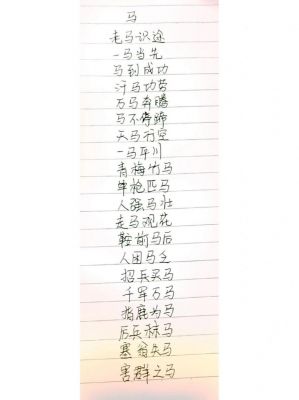 马
老马识途
一马当先
马到成功
汗马功劳
万马奔腾
马不停蹄
天马行空
一马平川
青梅竹马
单枪匹马
人强马壮
走马观花
鞍前马后
人困马乏
招兵买马
千军万马
指鹿为马
厉兵秣马
塞翁失马
害群之马